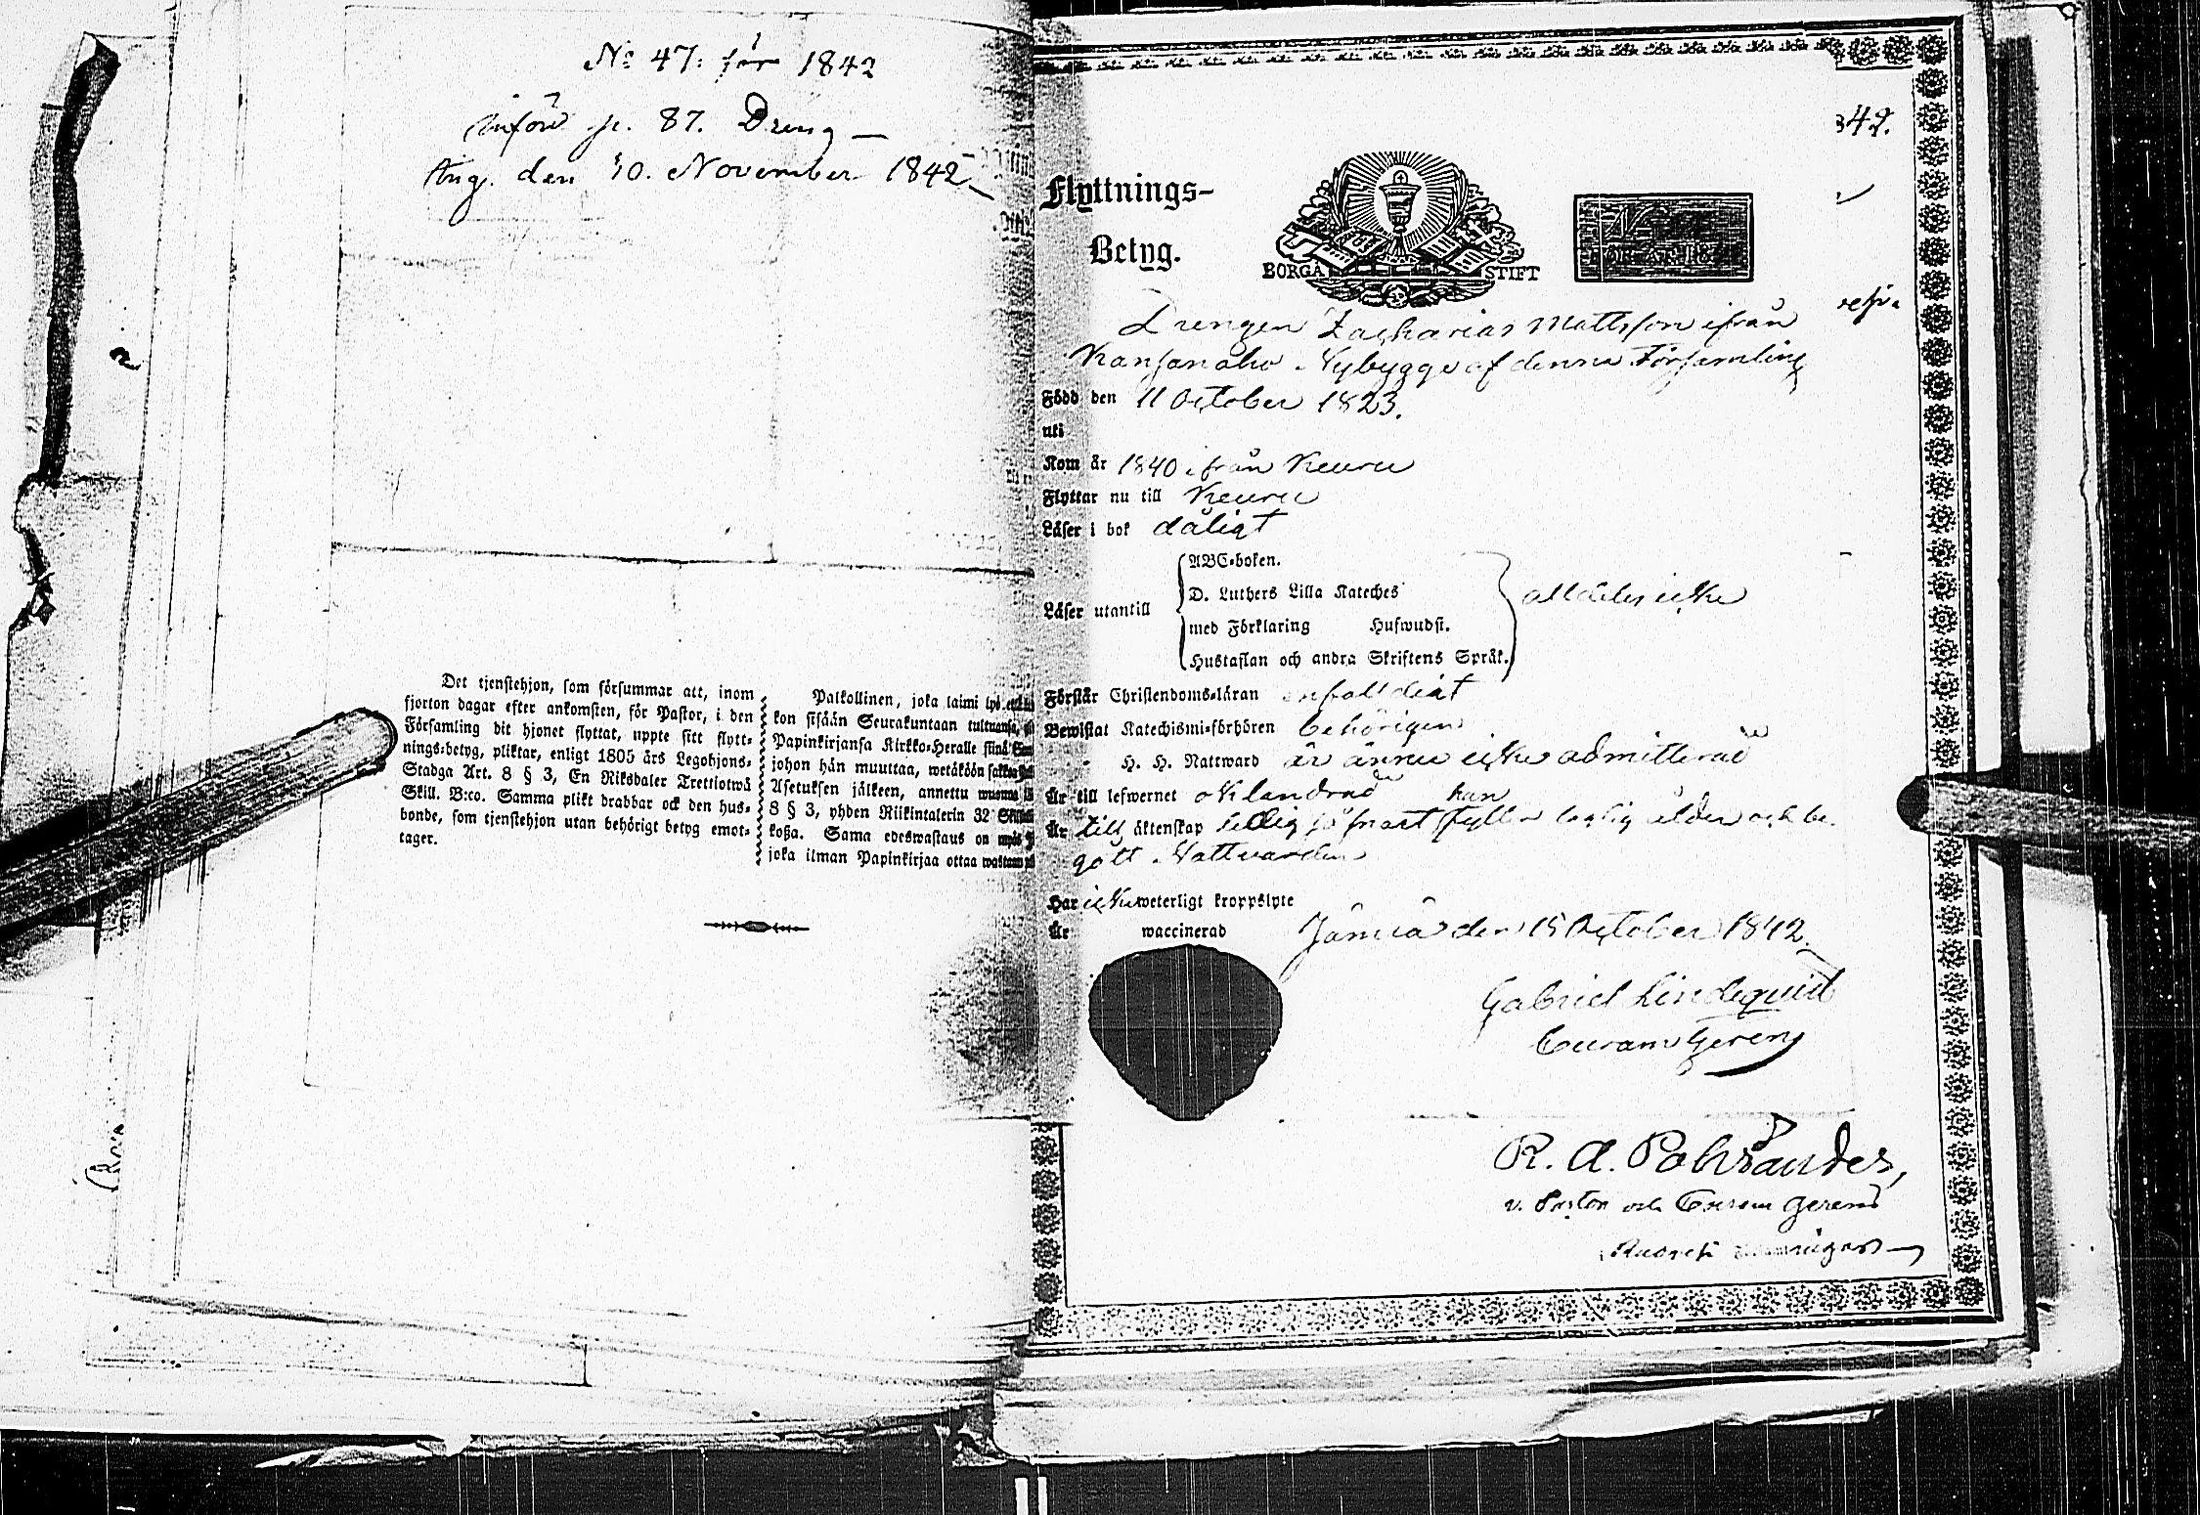 No 47. för 1842
införd p. 87. Dreng
Ang. den 10. November 1842
Det tjenstehjon, som försummar att, inom
fjorton dagar efter ankomsten, för Pastor, i den
Församling dit hjonet flyttat, uppte sitt flytt=
nings=betyg, pliktar, enligt 1805 års Legohjons=
Stadga Art. 8 § 3, En Riksdaler Trettiotwå
Skill. B:co. Samma plikt drabbar ock den hus=
bonde, som tjenstehjon utan behörigt betyg emot=
tager.
Palkollinen, joka laimi
kon sisään Seurakuntaan
Papinkirjansa Kirkko=Heralle siinä
johon hän muuttaa, wetäköön
Asetuksen jälkeen, annettu
8 § 3, yhden Riikintalerin 32
koßa. Sama edeswastaus on
joka ilman Papinkirjaa ottaa
42.
Flyttnings-
Betyg.
BORGÅ STIFT
Drengen Zacharias Mattsson ifrån
Kansanaho Nybygge af denna Församling
Född den 11 October 1823.
uti
Kom år 1840 ifrån Keuru
Flyttar nu till Keuru
Läser i bok dåligt
Läser utantill
ABC=boken.
D. Luthers Lilla Kateches
med Förklaring Hufwudst.
Hustaflan och andra Skriftens Språk.
alldeles icke
Förstår Christendoms=läran enfaldigt
Bewistat Katechismi=förhören behörigen
H. H. Nattward är ännu icke admitterad
Är till lefwernet oklandrad
Är till äktenskap ledig så snart han fyller laglig ålder och be=
gått Nattvarden
Har icke weterligt kroppslyte
Är waccinerad
Jämsä den 15 October 1842.
Gabriel Lindequist
Curam Gerens
R. A. Pohjanders,
v. Pastor och Curam gerens